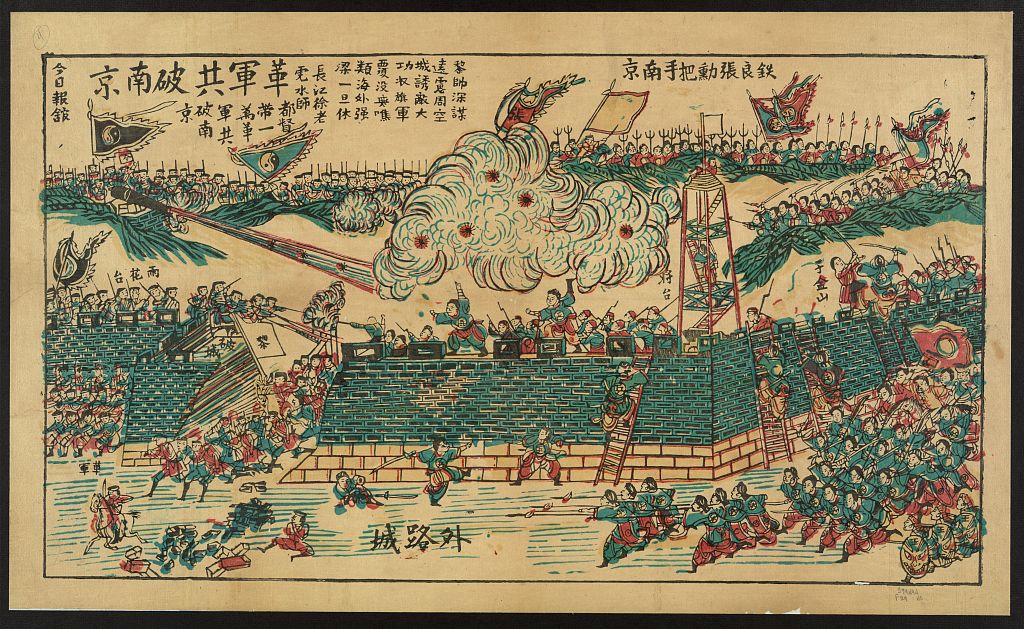 鉄良張勳把手南京
黎帥深謀
遠慮周空
城誘敵大
功收旗軍
覆没無噍
類海外强
梁一旦休
長江徐老
虎水師
都督
帶一
為革
軍共
破南
京
革軍共破南京
今日報舘
雨花台
将台
子金山
破城
黎
革軍
外路城